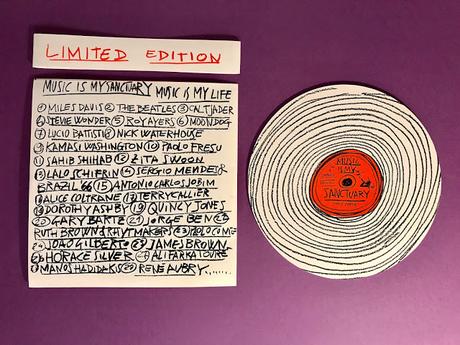 LIMITED EDITION
MUSIC IS MY SANCTUARY MUSIC IS MY LIFE
① MILES DAVIS ② THE BEATLES ③ CAL TJADER
④ STEVIE WONDER ⑤ ROY AYERS ⑥ MOONDOG
⑦ LUCIO BATTISTI ⑧ NICK WATERHOUSE
⑨ KAMASI WASHINGTON ⑩ PAOLO FRESU
⑪ SAHIB SHIHAB ⑫ ZITA SWOON
⑬ LALO SCHIFRIN ⑭ SERGIO MENDES &
BRAZIL '66 ⑮ ANTONIO CARLOS JOBIM
⑯ ALICE COLTRANE ⑰ TERRY CALLIER
⑱ DOROTHY ASHBY ⑲ QUINCY JONES
⑳ GARY BARTZ ㉑ JORGE BEN ㉒
RUTH BROWN & RHYTMAKERS ㉓ PAOLO CONTE
㉔ JOAO GILBERTO ㉕ JAMES BROWN
㉖ HORACE SILVER ㉗ ALI FARKA TOURE
㉘ MANOS HADIDAKIS ㉙ RENE AUBRY......
MUSIC
IS MY
SANCTUARY